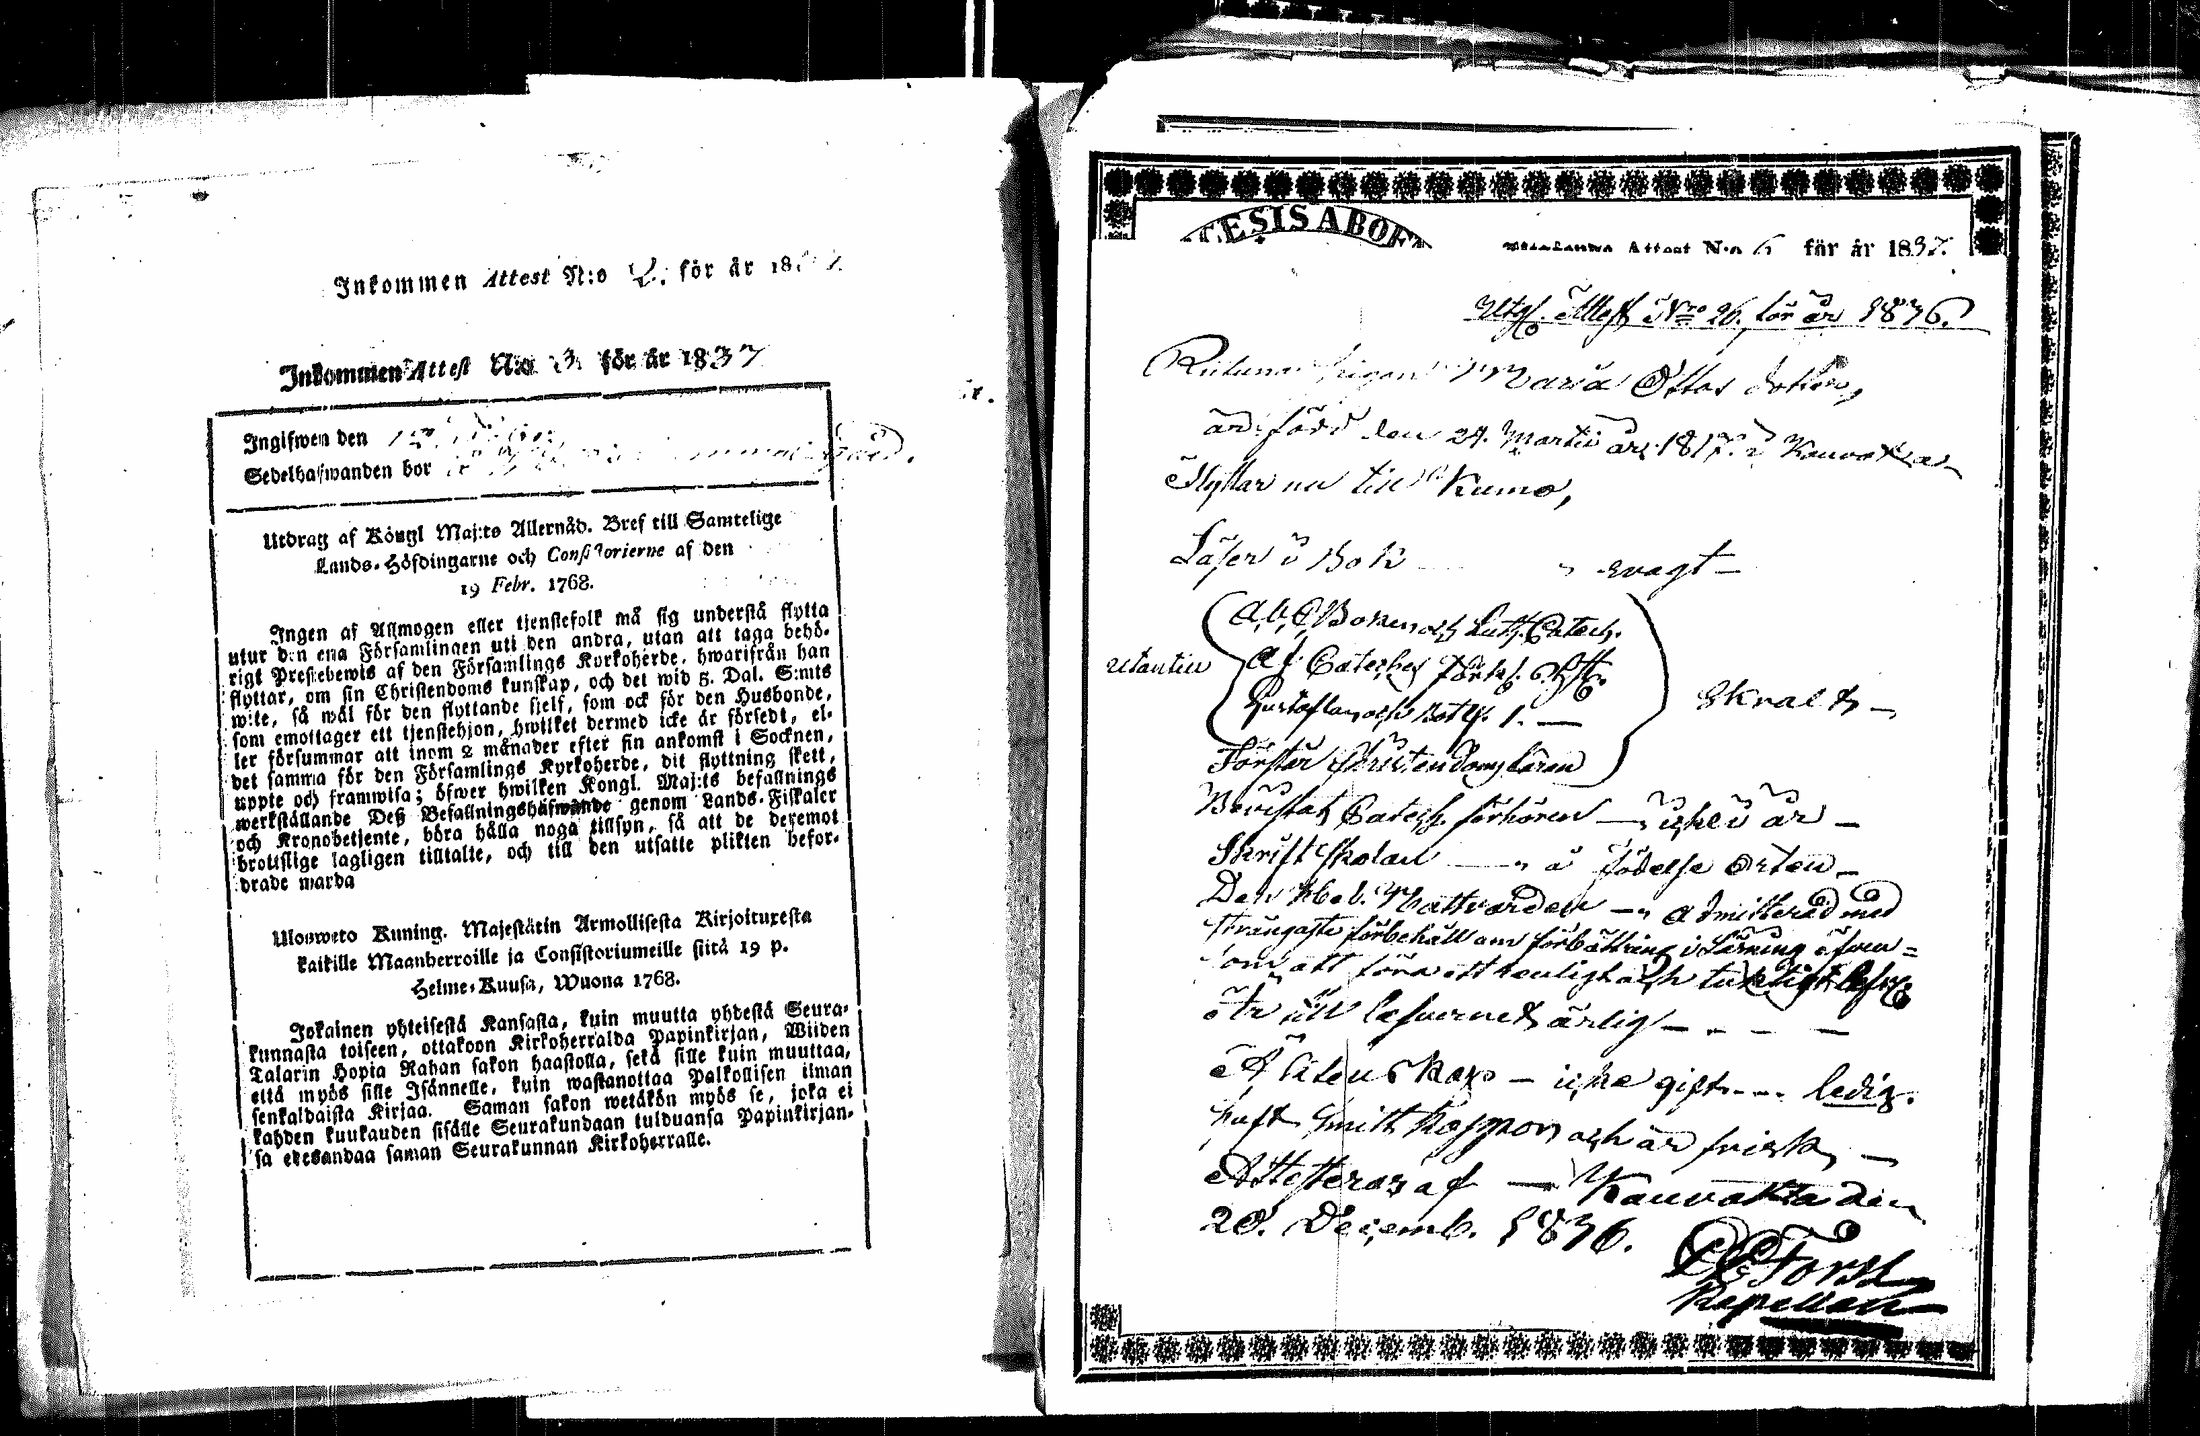 Inkommen Attest N:o 2. för år 18
Inkommen Attest N:o 3 för år 1837
Ingifwen den
Sedelhafwanden bor
Utdrag af Köngl Maj:ts Allernåd. Bref till Samtelige
Lands-Höfdingarne och Consistorierne af den
19 Febr. 1768.
Ingen af Allmogen eller tjenstefolk må sig understå flytta
utur den ena Församlingen uti den andra, utan att taga behö-
rigt Prestebewis af den Församlings Kyrkoherde, hwarifrån han
flyttar, om sin Christendoms kunskap, och det wid 5. Dal. S:mts
wite, så wäl för den flyttande sjelf, som ock för den Husbonde,
som emottager ett tjenstehjon, hwilket dermed icke är försedt, el-
ler försummar att inom 2 månader efter sin ankomst i Socknen,
det samma för den Församlings Kyrkoherde, dit flyttning skett,
uppte och framwisa; öfwer hwilken Kongl. Maj:ts befallnings
werkställande Deß Befallningshafwande genom Lands-Fiskaler
och Kronobetjente, böra hålla noga tillsyn, så att de deremot
brottslige lagligen tilltalte, och till den utsatte plikten befor-
drade warda
Ulosweto Kuning. Majestätin Armollisesta Kirjoituxesta
kaikille Maanherroille ja Consistoriumeille siitä 19 p.
Helme-Kuusa, Wuona 1768.
Jokainen yhteisestä Kansasta, kuin muutta yhdestä Seura-
kunnasta toiseen, ottakoon Kirkoherralda Papinkirjan, Wiiden
Talarin Hopia Rahan sakon haastolla, sekä sille kuin muuttaa,
että myös sille Isännelle, kuin wastanottaa Palkollisen ilman
senkaldaista Kirjaa. Saman sakon wetäkön myös se, joka ei
kahden kuukauden sisälle Seurakundaan tulduansa Papinkirjan-
sa edesandaa saman Seurakunnan Kirkoherralle.
CESIS ABOE
Attest N:o 6 för år 1837.
Utgf. Attest Nro 26. för år 1836.
Maria Ottos dotter,
är född den 24. Martii år 1817. i Kauvatsa
Flyttar nu till Kumo,
Läser i Bok svagt
utantill
A,b,c,Boken och Luth. Catech.
Af Catechet. Förkl.
och Botps. 1.
Förstår Christendoms läran
Skralt
Bevistat Catech. förhören i år
Skrift Skolan å födelse Orten
Den H. Nattvarden admitterad med
strängaste förbehåll om förbättring i Läsning äfven-
som att föra ett och
Är till lefvernet ärlig
Äktenskap icke gift ledig.
haft Smitt Koppor och är frisk,
Attesteras af Kauvatsa den
28. Decemb. 1836.
Forss
Kapellan